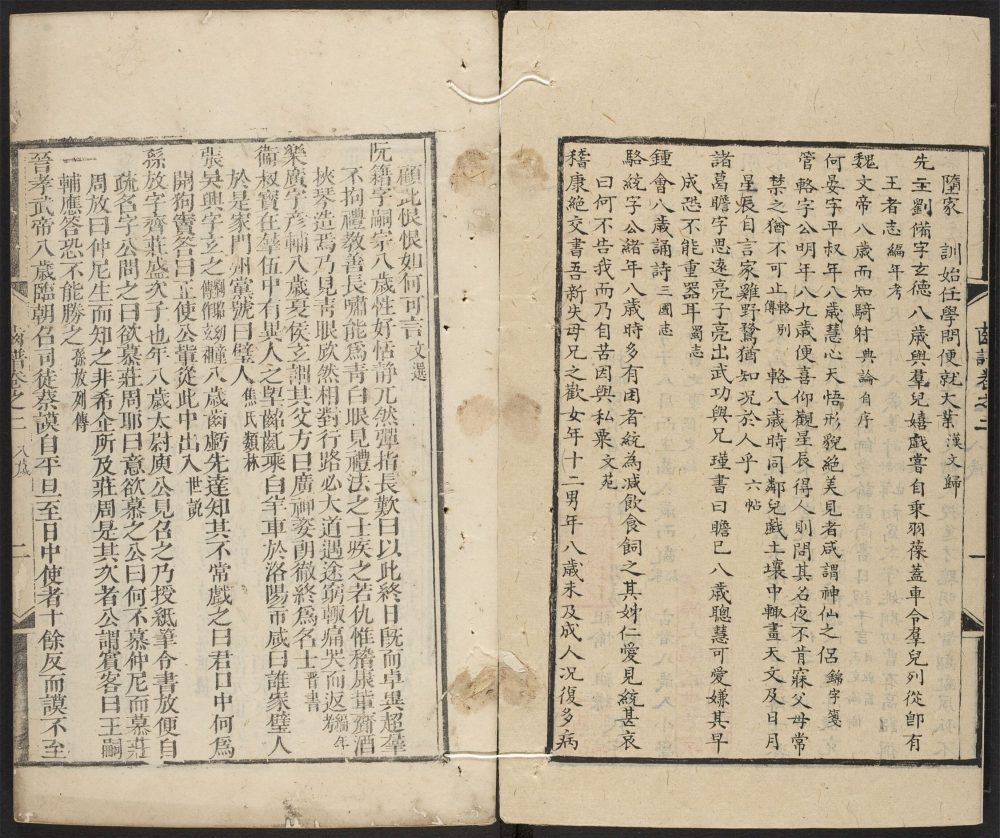 墮家 訓始任學問便就大業漢文歸
先主劉備字玄德八歲與羣兒嬉戲嘗自乘羽葆蓋車令羣兒列從卽有
王者志編年考
魏文帝八歲而知騎射典論自序
何晏字平叔年八歲慧心天悟形貌絕美見者咸謂神仙之侶錦字箋
管輅字公明年八九歲便喜仰觀星辰得人則問其名夜不肯寐父母常
禁之猶不可止輅別傳 輅八歲時同鄰兒戲土壤中輙畫天文及日月
星辰自言家雞野鶩猶知况於人乎六帖
諸葛瞻字思遠亮子亮出武功與兄瑾書曰瞻已八歲聰慧可愛嫌其早
成恐不能重器耳蜀志
鍾會八歲誦詩三國志
駱統字公緒年八歲時多有困者統為減飲食飼之其姊仁愛見統甚哀
曰何不告我而乃自苦因與私粟文苑
稽康絕交書吾新失母兄之歡女年十二男年八歲未及成人况復多病
齒譜卷之二
一
顧此恨恨如何可言文選
阮籍字嗣宗八歲性好恬静兀然彈指長歎曰以此終日既而卓異超羣
不拘禮教善長嘯能爲青白眼見禮法之士疾之若仇惟稽康輩齎酒
挾琴造焉乃見青眼欣然相對行路必大道遇途窮輙痛哭而返編年考
樂廣字彦輔八歲夏侯玄謂其父方曰廣神姿朗徹終爲名士晋書
衞叔寶在羣伍中有異人之望齠齔乘白羊車於洛陽市咸曰誰家璧人
於是家門州黨號曰璧人焦氏類林
張吳興字玄之八歲齒虧先達知其不常戲之曰君口中何爲
開狗竇答曰正使公輩從此中出入世說
孫放字齊莊盛次子也年八歲太尉庾公見名之乃授紙筆令書放便自
疏名字公問之曰欲慕莊周耶曰意欲慕之公曰何不慕仲尼而慕莊
周放曰仲尼生而知之非希企所及莊周是其次者公謂賓客曰王嗣
輔應答恐不能勝之孫放別傳
晉孝武帝八歲臨朝召司徒蔡謨自平旦至日中使者十餘反而謨不至
齒譜卷之二 八歲 二